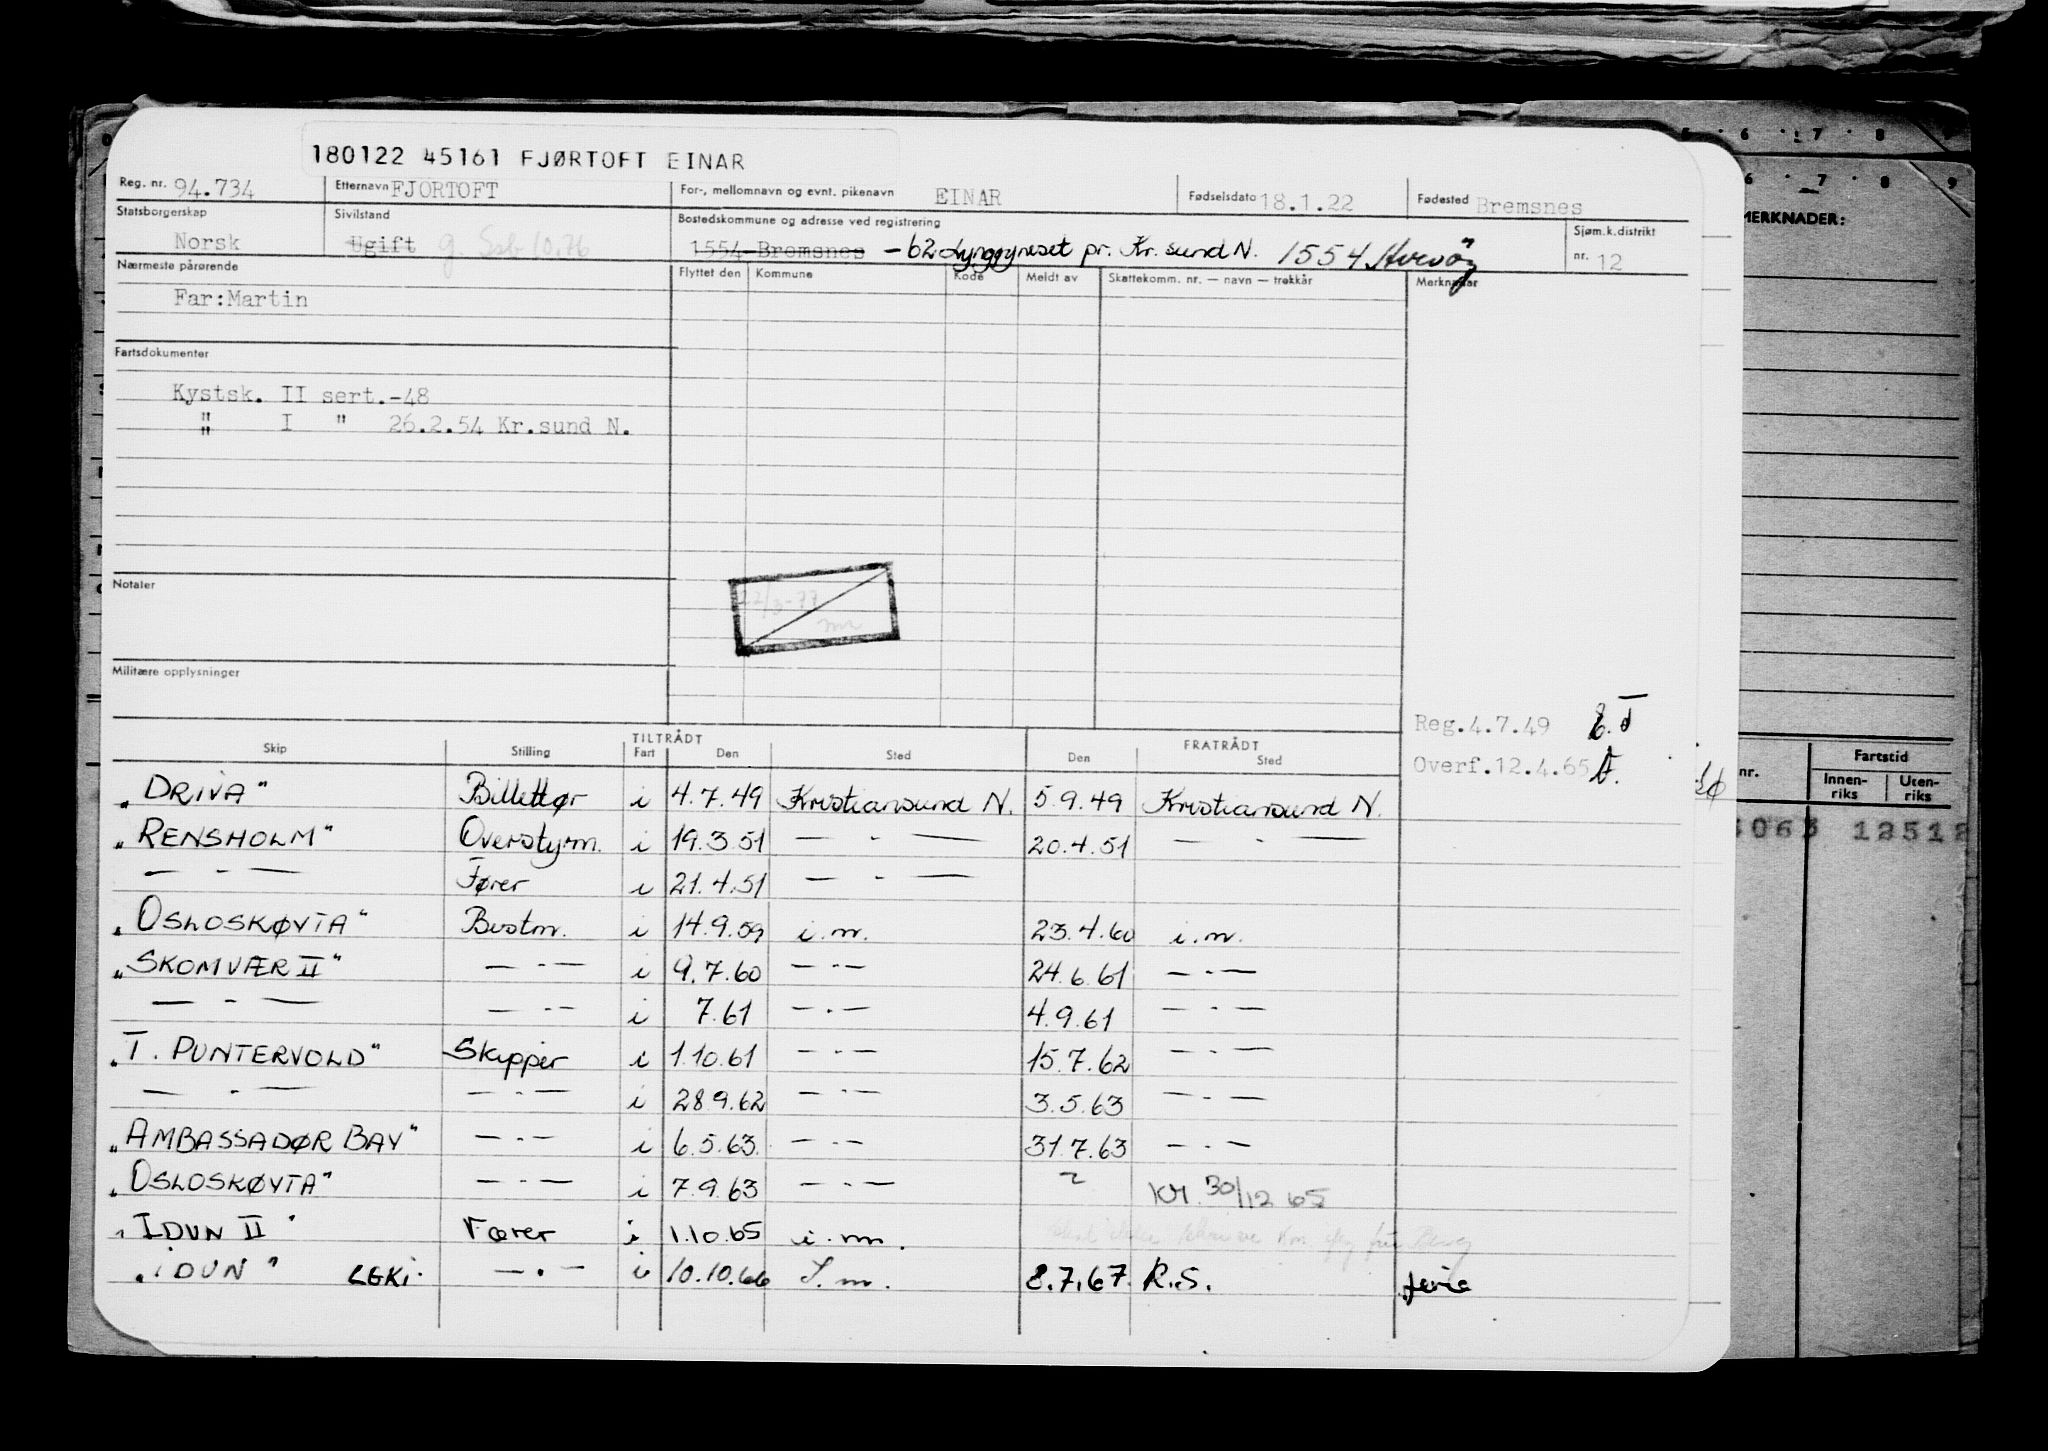 180122 45161 FJØRTOFT EINAR
Reg. nr. 94.734 Etternavn FJØRTOFT For-, mellomnavn og evnt. pikenavn EINAR Fødselsdato 18.1.22 Fødested Bremsnes
Statsborgerskap Norsk Sivilstand Ugift g. 10.76 Bostedskommune og adresse ved registrering 1554 Bremsnes - pr. Kr.sund N. 1554 Averøy Sjøm.k.distrikt nr. 12
Nærmeste pårørende Flyttet den Kommune Kode Meldt av Skattekomm. nr. — navn — trekkår Merknader
Far:Martin
Fartsdokumenter
Kystsk. II sert.-48
" I " 26.2.54 Kr.sund N.
"
Notater
22/3-77
Militære opplysninger
Reg.4.7.49
Overf.12.4.65
TILTRÅDT FRATRÅDT
Skip Stilling Fart Den Sted Den Sted
"DRIVA" Billettør i 4.7.49 Kristiansund N. 5.9.49 Kristiansund N.
"RENSHOLM" Overstyrm. i 19.3.51 — - — 20.4.51 — - —
— - — Fører i 21.4.51 — - —
"OSLOSKØYTA" Bestm. i 14.9.59 i.m. 23.4.60 i.m.
"SKOMVÆR II" — - — i 9.7.60 — - — 24.6.61 — - —
— - — — - — i 7.61 — - — 4.9.61 — - —
"T. PUNTERVOLD" Skipper i 1.10.61 — - — 15.7.62 — - —
— - — — - — i 28.9.62 — - — 3.5.63 — - —
"AMBASSADØR BAY" — - — i 6.5.63 — - — 31.7.63 — - —
"OSLOSKØYTA" — - — i 7.9.63 — - — 30/12 65
"IDUN II" Fører i 1.10.65 i.m.
"IDUN" LEKI. — - — i 10.10.66 8.7.67 R.S. ferie
MERKNADER:
nr. Fartstid
Innen-riks Uten-riks
12512